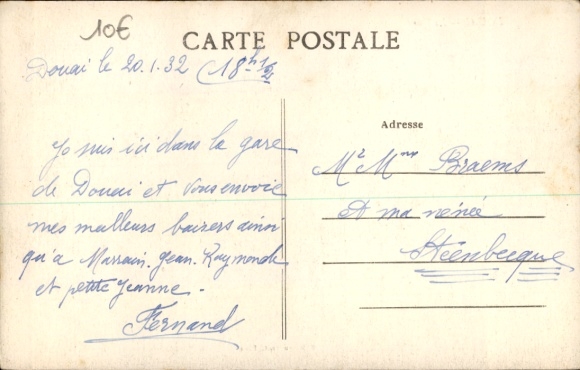 10€
CARTE POSTALE
Douai le 20.1.32 (18h 1/2)
Adresse
Je suis ici dans la gare
de Douai et vous envoie
mes meilleurs baisers ainsi
qu'a Marrain. Jean. Raymonde
et petite Jeanne.
Fernand
Mr Mme Braems
et ma nénée
Steenbecque